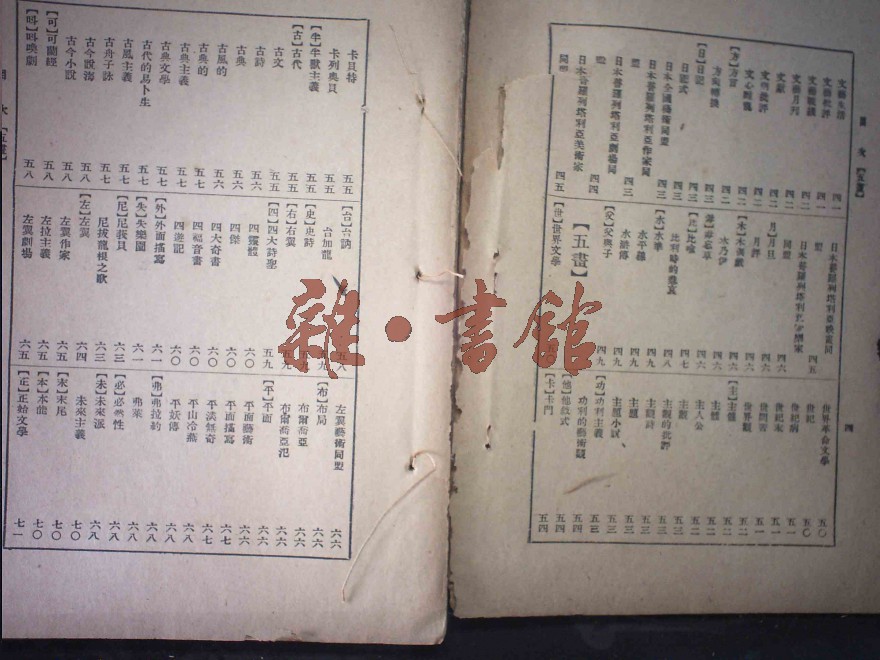 目次【五畫】
文藝生活 四一
文藝批評
文藝戰線
文藝月刊 四二
文獻 四二
文明批評 四二
文心雕龍 四二
【方】方言 四二
【日】日記 四三
日記式 四三
日本全國藝術同盟 四三
日本普羅列塔利亞作家同
盟 四三
日本普羅列塔利亞劇場同
盟 四四
日本普羅列塔利亞美術家
同盟 四五
日本普羅列塔利亞映畫同
盟 四五
日本普羅列塔利亞音樂家
同盟 四六
【月】月旦 四六
月評 四六
【木】木頭戲 四六
木乃伊 四六
【毋】毋忘草 四六
【比】比喻 四七
比利時的悲哀 四八
【水】水準 四八
水平線 四九
水滸傳 四九
【父】父與子 四九
【五畫】
【世】世界文學
世界革命文學 五〇
世紀 五〇
世紀病 五一
世紀末 五一
世間苦 五一
世界觀 五一
【主】主義 五二
主體 五二
主人公 五二
主觀 五三
主觀的批評 五三
主觀詩 五三
主題 五三
主題小說 五三
【功】功利主義 五三
功利的藝術觀 五四
【他】他敘式 五四
【卡】卡門 五四
四
卡貝特 五五
卡列奧貝 五五
【牛】牛獸主義 五五
【古】古代 五五
古文 五五
古詩 五六
古典 五六
古風的 五六
古典的 五七
古典主義 五七
古典文學 五七
古代的易卜生 五七
古風主義 五七
古舟子詠 五七
古今說海 五八
古今小說 五八
【可】可蘭經 五八
【叫】叫喚劇 五八
【台】台詞 五八
台加龍
【史】史詩 五九
【右】右翼 五九
【四】四大詩聖 五九
四靈體 六〇
四傑 六〇
四大奇書 六〇
四福音書 六〇
四遊記 六〇
【外】外面描寫 六一
【失】失樂園 六一
【尼】尼荻貝 六三
尼拔龍根之歌 六三
【左】左翼 六四
左翼作家 六五
左拉主義 六五
左翼劇場 六五
左翼藝術同盟 六六
【布】布局 六六
布爾喬亞 六六
布爾喬亞氾 六六
【平】平面 六六
平面藝術 六六
平面描寫 六七
平淡無奇 六七
平山冷燕 六八
平妖傳 六八
【弗】弗拉約 六八
弗萊 六八
【必】必然性 六八
【未】未來派 六八
未來主義 七〇
【末】末尾 七〇
【本】本能 七〇
【正】正始文學 七一
目次【五畫】
雜·書館